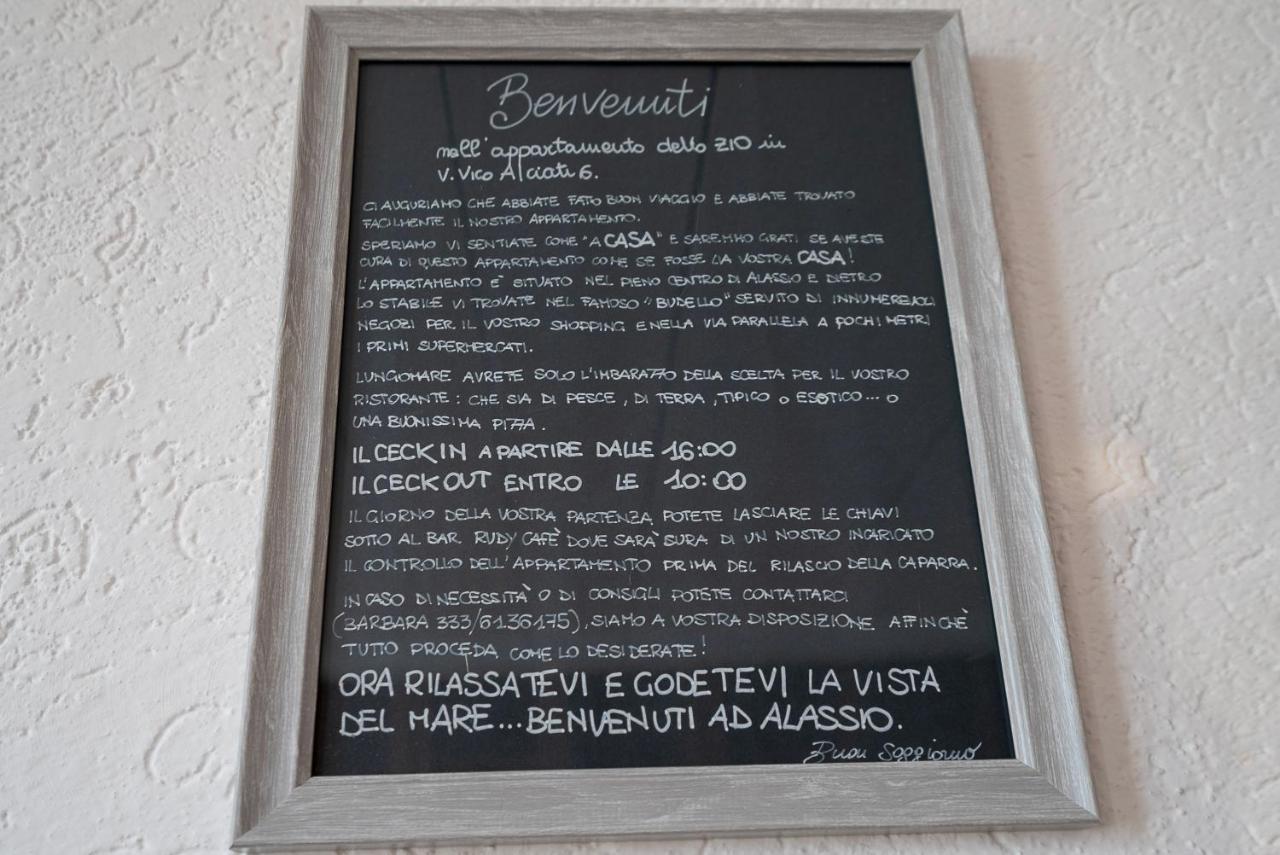 Benvenuti
nell'appartamento dello ZIO in
V. Vico Alciati 6.
CI AUGURIAMO CHE ABBIATE FATO BUON VIAGGIO E ABBIATE TROVATO
FACILMENTE IL NOSTRO APPARTAMENTO.
SPERIAMO VI SENTIATE COME "A CASA" E SAREMMO GRATI SE AVESTE
CURA DI QUESTO APPARTAMENTO COME SE FOSSE LA VOSTRA CASA!
L'APPARTAMENTO E' SITUATO NEL PIENO CENTRO DI ALASSIO E DIETRO
LO STABILE VI TROVATE NEL FAMOSO "BUDELLO" SERVITO DI INNUMEREVOLI
NEGOZI PER IL VOSTRO SHOPPING E NELLA VIA PARALLELA A POCHI METRI
I PRIMI SUPERMERCATI.
LUNGOMARE AVRETE SOLO L'IMBARAZZO DELLA SCELTA PER IL VOSTRO
RISTORANTE : CHE SIA DI PESCE , DI TERRA , TIPICO o ESOTICO... o
UNA BUONISSIMA PIZZA .
IL CECK IN A PARTIRE DALLE 16:00
IL CECK OUT ENTRO LE 10:00
IL GIORNO DELLA VOSTRA PARTENZA POTETE LASCIARE LE CHIAVI
SOTTO AL BAR RUDY CAFÈ DOVE SARÀ SURA DI UN NOSTRO INCARICATO
IL CONTROLLO DELL'APPARTAMENTO PRIMA DEL RILASCIO DELLA CAPARRA.
IN CASO DI NECESSITÀ O DI CONSIGLI POTETE CONTATTARCI
(BARBARA 333/6136175), SIAMO A VOSTRA DISPOSIZIONE AFFINCHÈ
TUTTO PROCEDA COME LO DESIDERATE!
ORA RILASSATEVI E GODETEVI LA VISTA
DEL MARE... BENVENUTI AD ALASSIO.
Buon Soggiorno